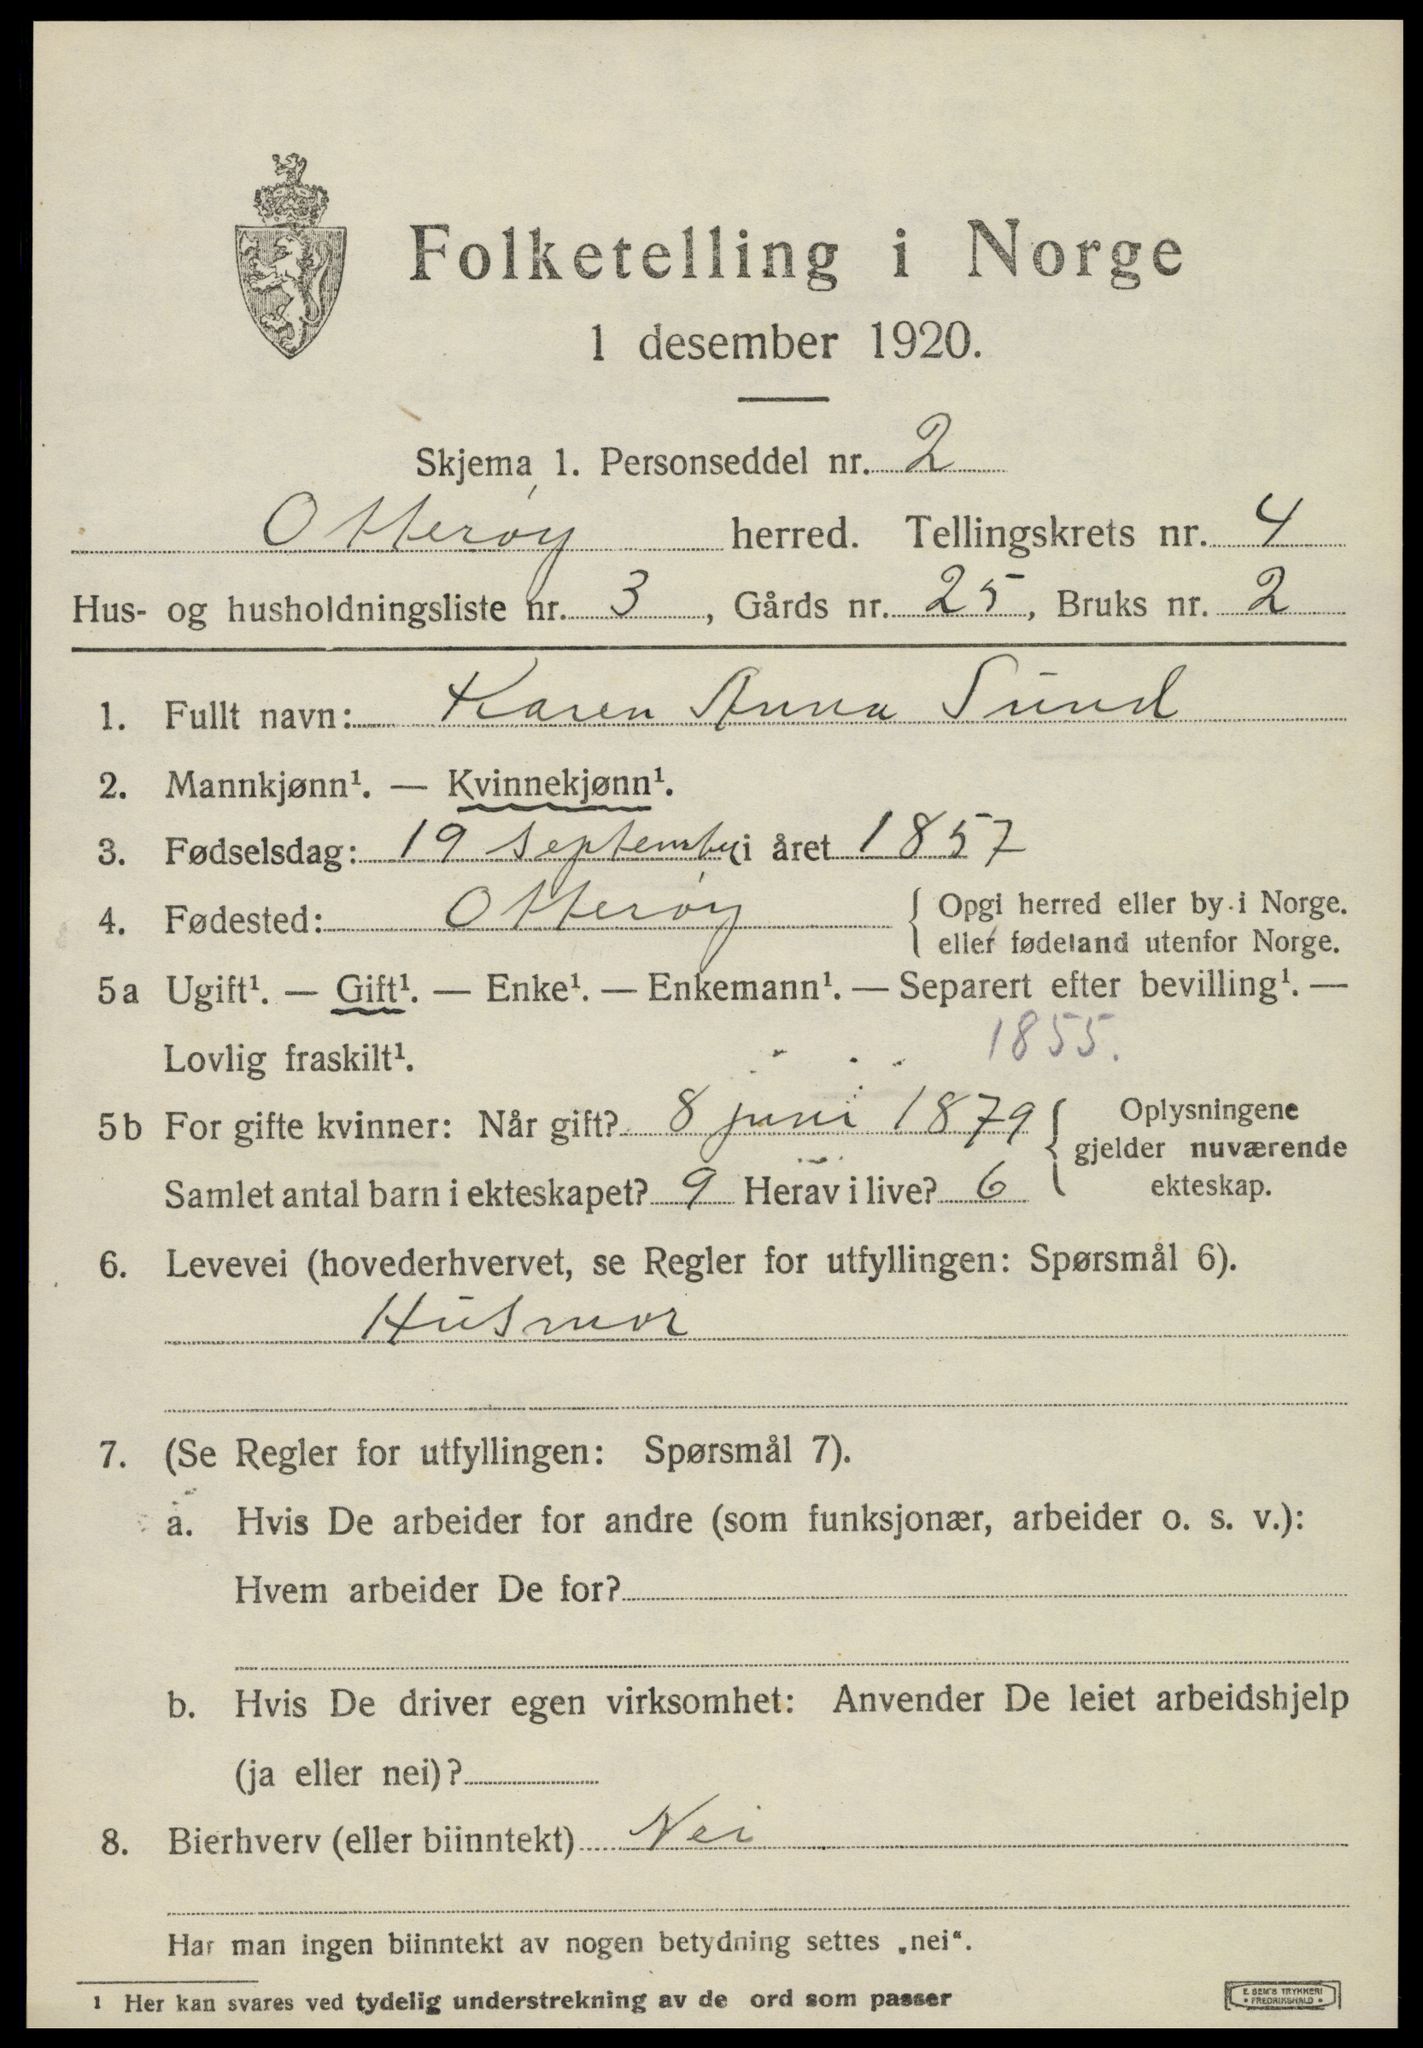 Folketelling i Norge
1 desember 1920.
Skjema 1. Personseddel nr. 2
Otterøy herred. Tellingskrets nr. 4
Hus- og husholdningsliste nr. 3, Gårds nr. 25, Bruks nr. 2
1. Fullt navn: Karen Anna Sund
2. Mannkjønn¹. — Kvinnekjønn¹.
3. Fødselsdag: 19 september i året 1857
4. Fødested: Otterøy { Opgi herred eller by i Norge.
eller fødeland utenfor Norge.
5a Ugift¹. — Gift¹. — Enke¹. — Enkemann¹. — Separert efter bevilling¹. —
Lovlig fraskilt¹. 1855.
5b For gifte kvinner: Når gift? 8 juni 1879 { Oplysningene
gjelder nuværende
Samlet antal barn i ekteskapet? 9 Herav i live? 6 ekteskap.
6. Levevei (hovederhvervet, se Regler for utfyllingen: Spørsmål 6).
Husmor
7. (Se Regler for utfyllingen: Spørsmål 7).
a. Hvis De arbeider for andre (som funksjonær, arbeider o. s. v.):
Hvem arbeider De for?
b. Hvis De driver egen virksomhet: Anvender De leiet arbeidshjelp
(ja eller nei)?
8. Bierhverv (eller biinntekt) Nei
Har man ingen biinntekt av nogen betydning settes „nei“.
1 Her kan svares ved tydelig understrekning av de ord som passer
E. SEM'S TRYKKERI
• FREDRIKSHALD •